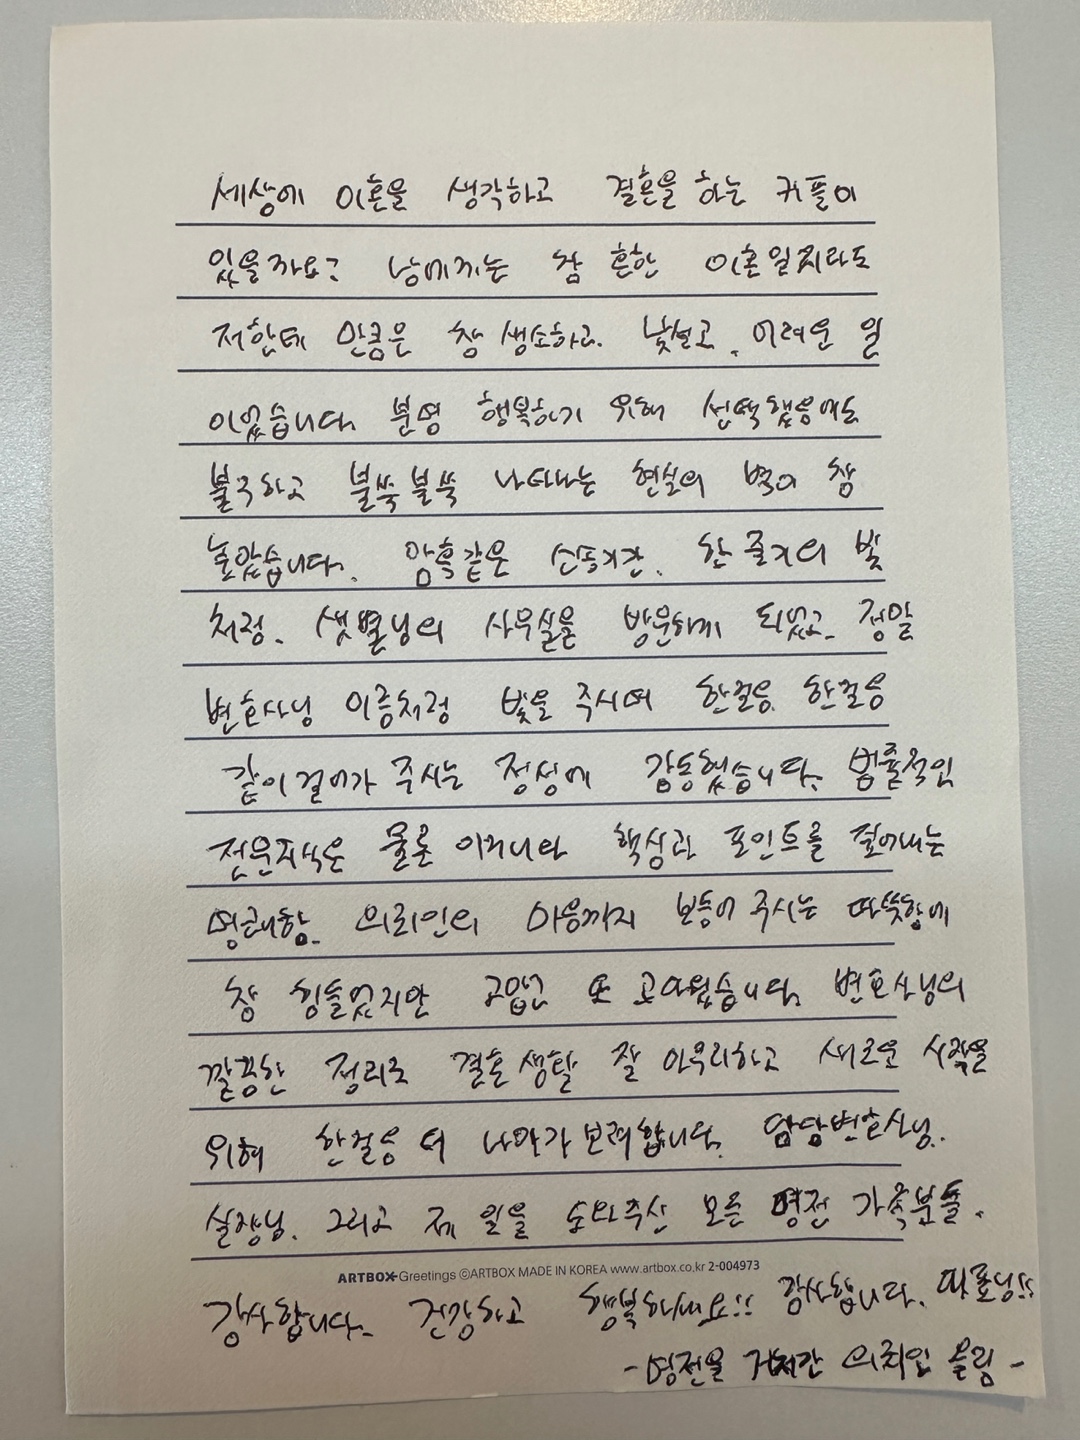 세상에 이혼을 생각하고 결혼을 하는 커플이
있을까요? 남에게는 참 흔한 이혼일지라도
저한테 만큼은 참 생소하고, 낯설고, 어려운 일
이었습니다. 분명 행복하기 위해 선택했음에도
불구하고 불쑥불쑥 나타나는 현실의 벽이 참
높았습니다. 암흑같은 순간, 한 줄기의 빛
처럼, 샛별님의 사무실을 방문하게 되었고, 정말
변호사님 이름처럼 빛을 주시며 한걸음, 한걸음
같이 걸어가 주시는 정성에 감동했습니다. 법률적인
전문지식은 물론 이거니와 핵심과 포인트를 짚어내는
명쾌함, 의뢰인의 마음까지 보듬어 주시는 따뜻함에
참 힘들었지만 고맙고 또 고마웠습니다. 변호사님의
깔끔한 정리로 결혼 생활 잘 마무리하고 새로운 시작을
위해 한걸음 더 나아가보려합니다. 담당변호사님,
실장님, 그리고 제 일을 도와주신 모든 명전 가족분들,
ARTBOX Greetings ©ARTBOX MADE IN KOREA www.artbox.co.kr 2-004973
감사합니다. 건강하고 행복하세요!! 감사합니다. 대표님!!
-명전을 거쳐간 의뢰인 올림-